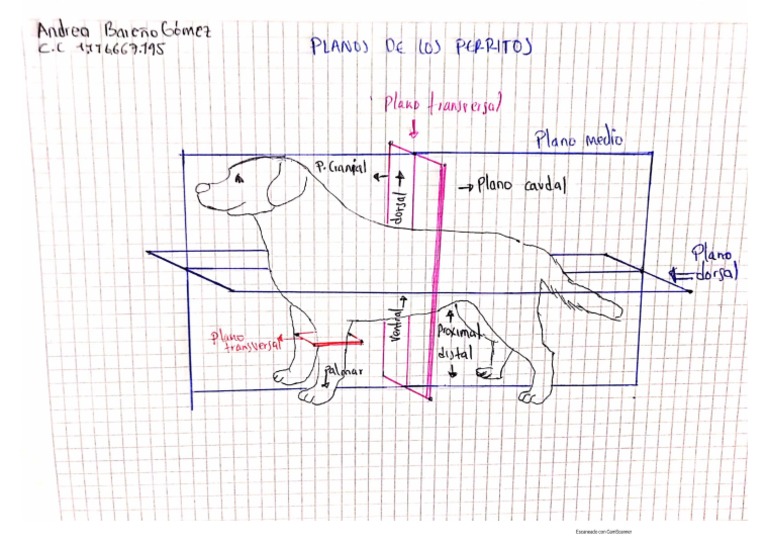 Andrea Bareño Gómez
C.C 1776667.195
PLANOS DE LOS PERRITOS
Plano transversal
Plano medio
P. Cranial
dorsal
Plano caudal
Plano
dorsal
ventral
Plano
transversal
Proximal
distal
Palmar
Escaneado con CamScanner